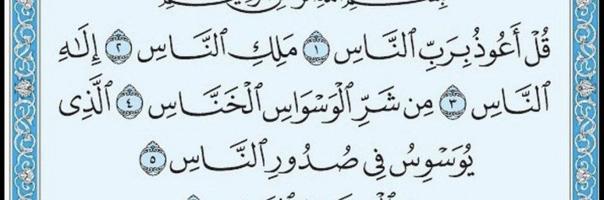 قُلْ أَعُوذُ بِرَبِّ ٱلنَّاسِ ١ مَلِكِ ٱلنَّاسِ ٢ إِلَٰهِ
ٱلنَّاسِ ٣ مِن شَرِّ ٱلْوَسْوَاسِ ٱلْخَنَّاسِ ٤ ٱلَّذِى
يُوَسْوِسُ فِى صُدُورِ ٱلنَّاسِ ٥